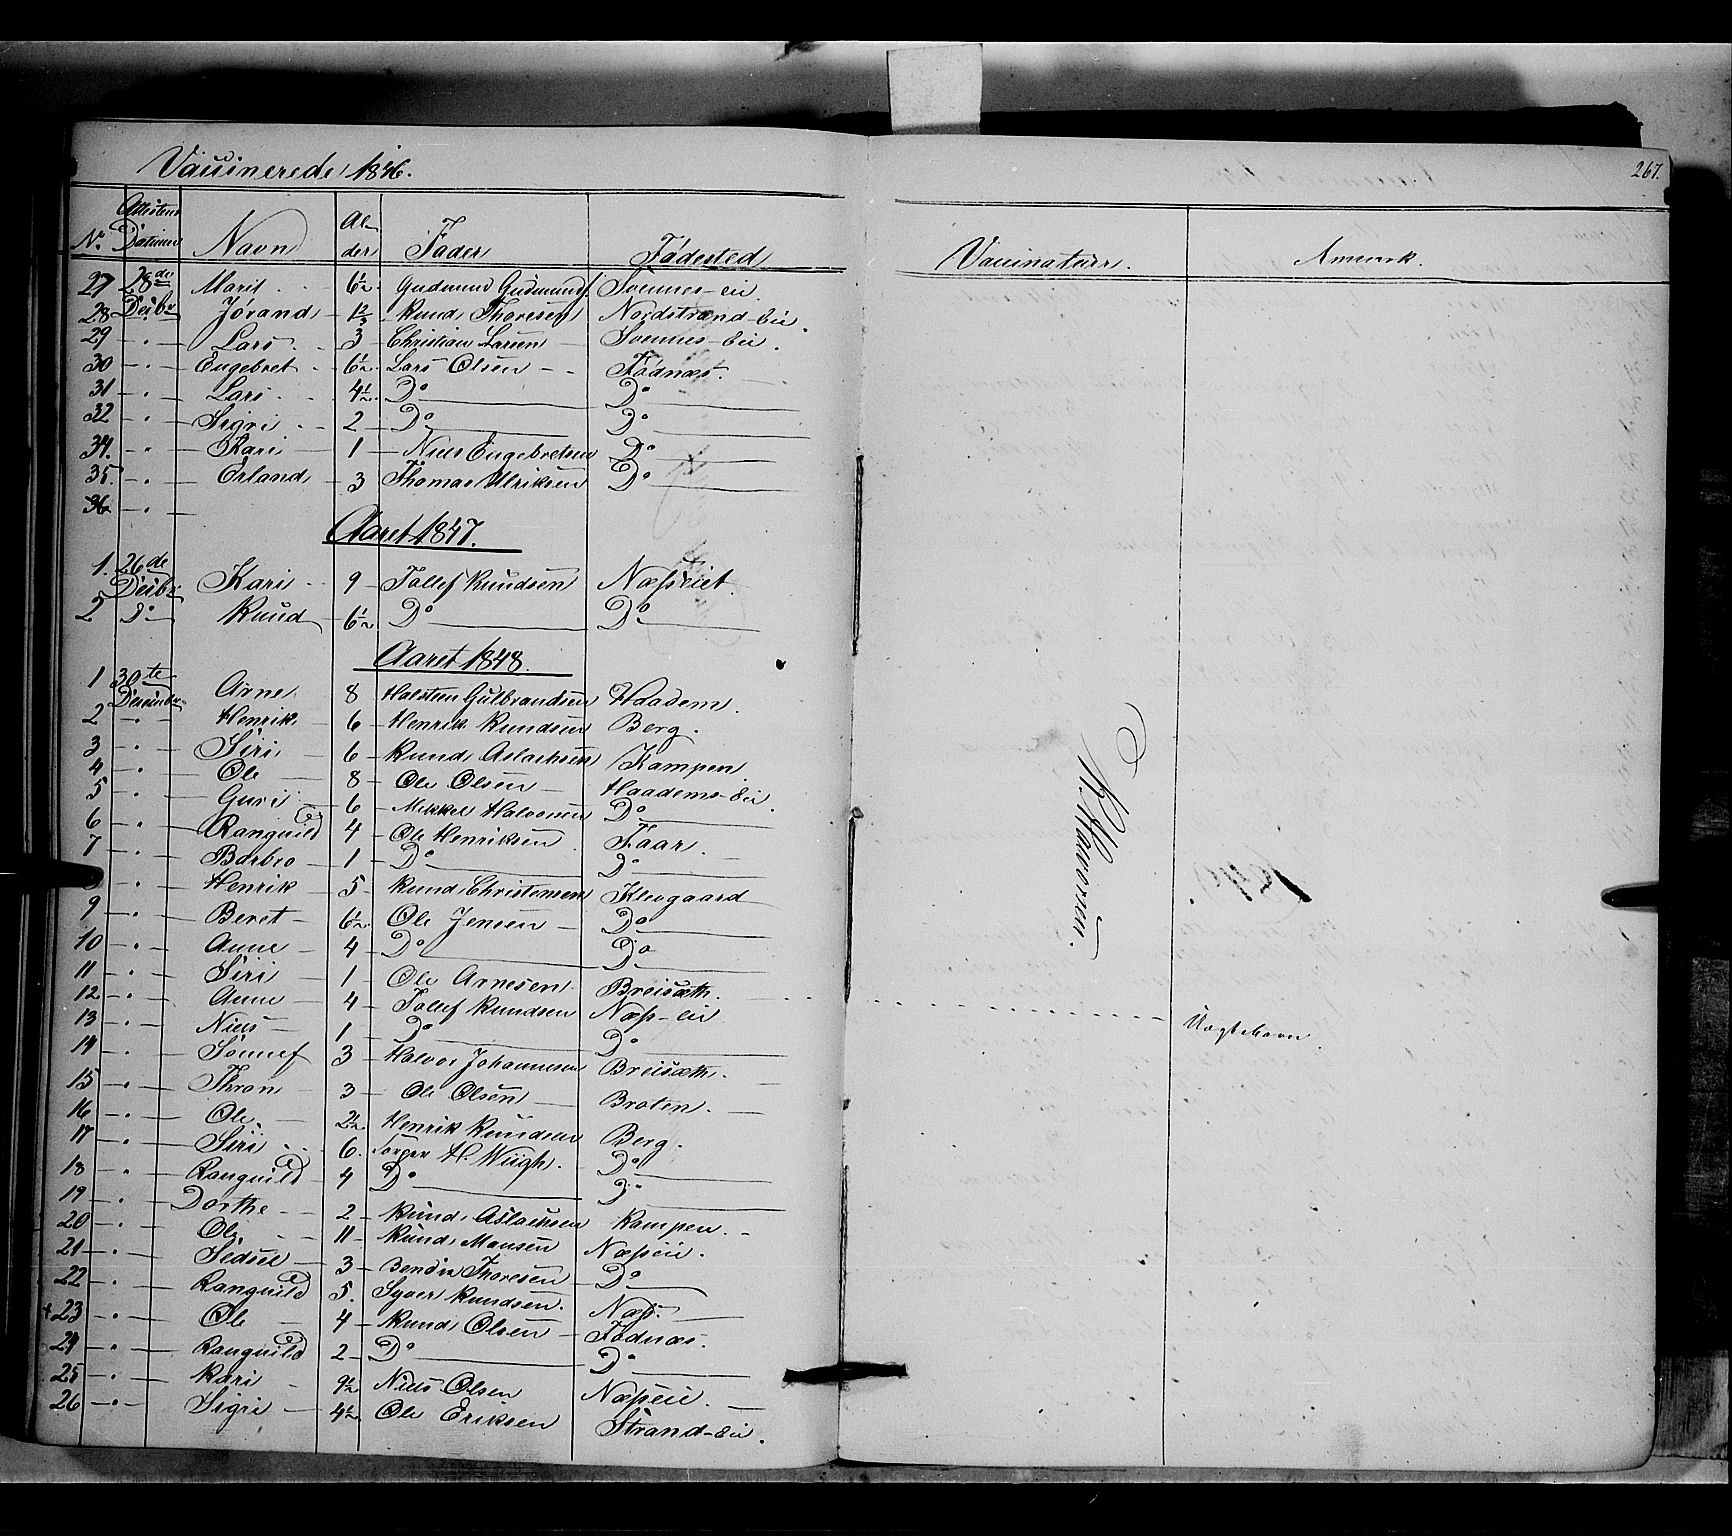 Vaccinerede 1846.
267.
No. Attestens Datum Navn Alder Fader Fødested
Vaccinateur. Anmærk.
27 28de Decbr Marit 6½ Gudmund Gudmunds. Svennes-eie
28 Jørand 1⅔ Knud Thoresen Nordstrand-Eie.
29 " Lars 3 Christian Larsen Svennes-Eie.
30 " Engebret 6½ Lars Olsen Fødnæs.
31 " Lars 4½ Do Do
32 " Sigri 2 Do Do
34. " Kari 1 Niels Engebretsen Do
35. " Erland 3 Thomas Ulriksen Do
36 "
Aaret 1847.
1. 26de Decbr Kari 9 Tollef Knudsen Næsseiet.
2 Do Knud 6½ Do Do
Aaret 1848.
1 30te December Arne 8 Halsteen Gulbrandsen Haadem.
2 " Henrik 6 Henrik Knudsen Berg.
3 " Siri 6 Knud Aslachsen Kampen
4 " Ole 8 Ole Olsen Haadems-Eie.
5 " Guri 6 Mikkel Halvorsen Do
6 " Ranguild 4 Ole Henriksen Faar.
7 " Barbro 1 Do Do
8 " Henrik 5 Knud Christensen Klevgaard
9 " Beret 6½ Ole Jensen Do
10 " Anne 4 Do Do
11 " Siri 1 Ole Arnesen Breisæth.
12 " Anne 4 Tollef Knudsen Næss-eie
13 " Niels 1 Do Do
14 " Sønnef 3 Halvor Johannesen Breisæth.
15 " Thron 3 Ole Olsen Braten.
16 " Ole 2½ Henrik Knudsen Berg.
17 " Siri 6. Torger H. Wiigh. Do
18 " Ranguild 4 Do Do
19 " Dorthe 2 Knud Aslachsen Kampen.
20 " Ole 11 Knud Monsen Næsseie.
21 " Sedsel 3 Bendix Thoresen Do
22 " Ranguild 5. Syver Knudsen. Næss.
+23 " Ole 4 Knud Olsen Fødnæs.
24 " Ranguild 2 Do Do
25 " Kari 9½ Niels Olsen Næsseie.
26 " Sigri 4½ Ole Eriksen Strand-Eie.
K. Halvorsen.
Uægte Barn.